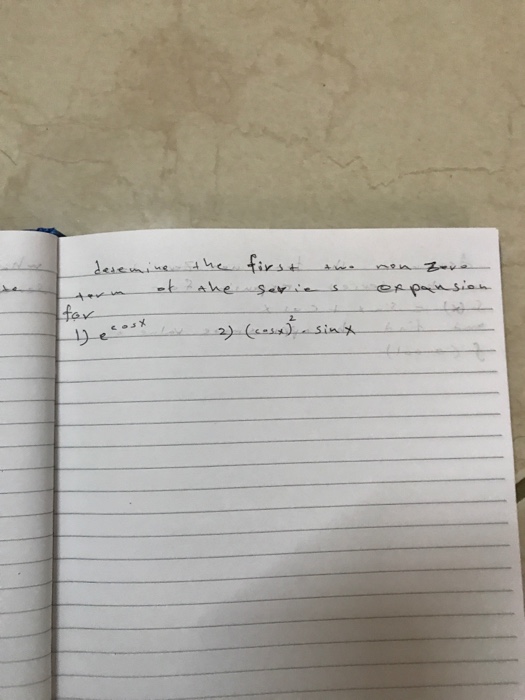 desemine the first two non zero
term of the series expansion
for
1) e^cosx 2) (cosx)^2 - sinx